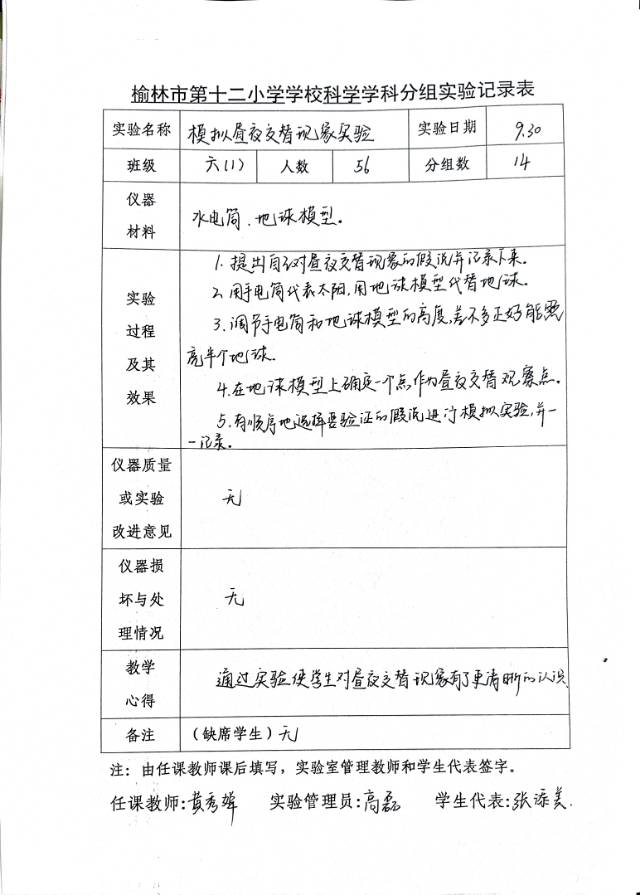 榆林市第十二小学学校科学学科分组实验记录表
实验名称 模拟昼夜交替现象实验 实验日期 9.30
班级 六(1) 人数 56 分组数 14
仪器
材料
水电筒、地球模型。
实验
过程
及其
效果
1. 提出自己对昼夜交替现象的假说并记录下来。
2. 用手电筒代表太阳,用地球模型代替地球。
3. 调节手电筒和地球模型的高度,差不多正好能照
亮半个地球。
4. 在地球模型上确定一个点,作为昼夜交替观察点。
5. 有顺序地选择要验证的假说进行模拟实验,并一
一记录。
仪器质量
或实验
改进意见
无
仪器损
坏与处
理情况
无
教学
心得
通过实验使学生对昼夜交替现象有了更清晰的认识
备注 (缺席学生)无
注:由任课教师课后填写,实验室管理教师和学生代表签字。
任课教师:黄秀 实验管理员:高磊 学生代表:张添美